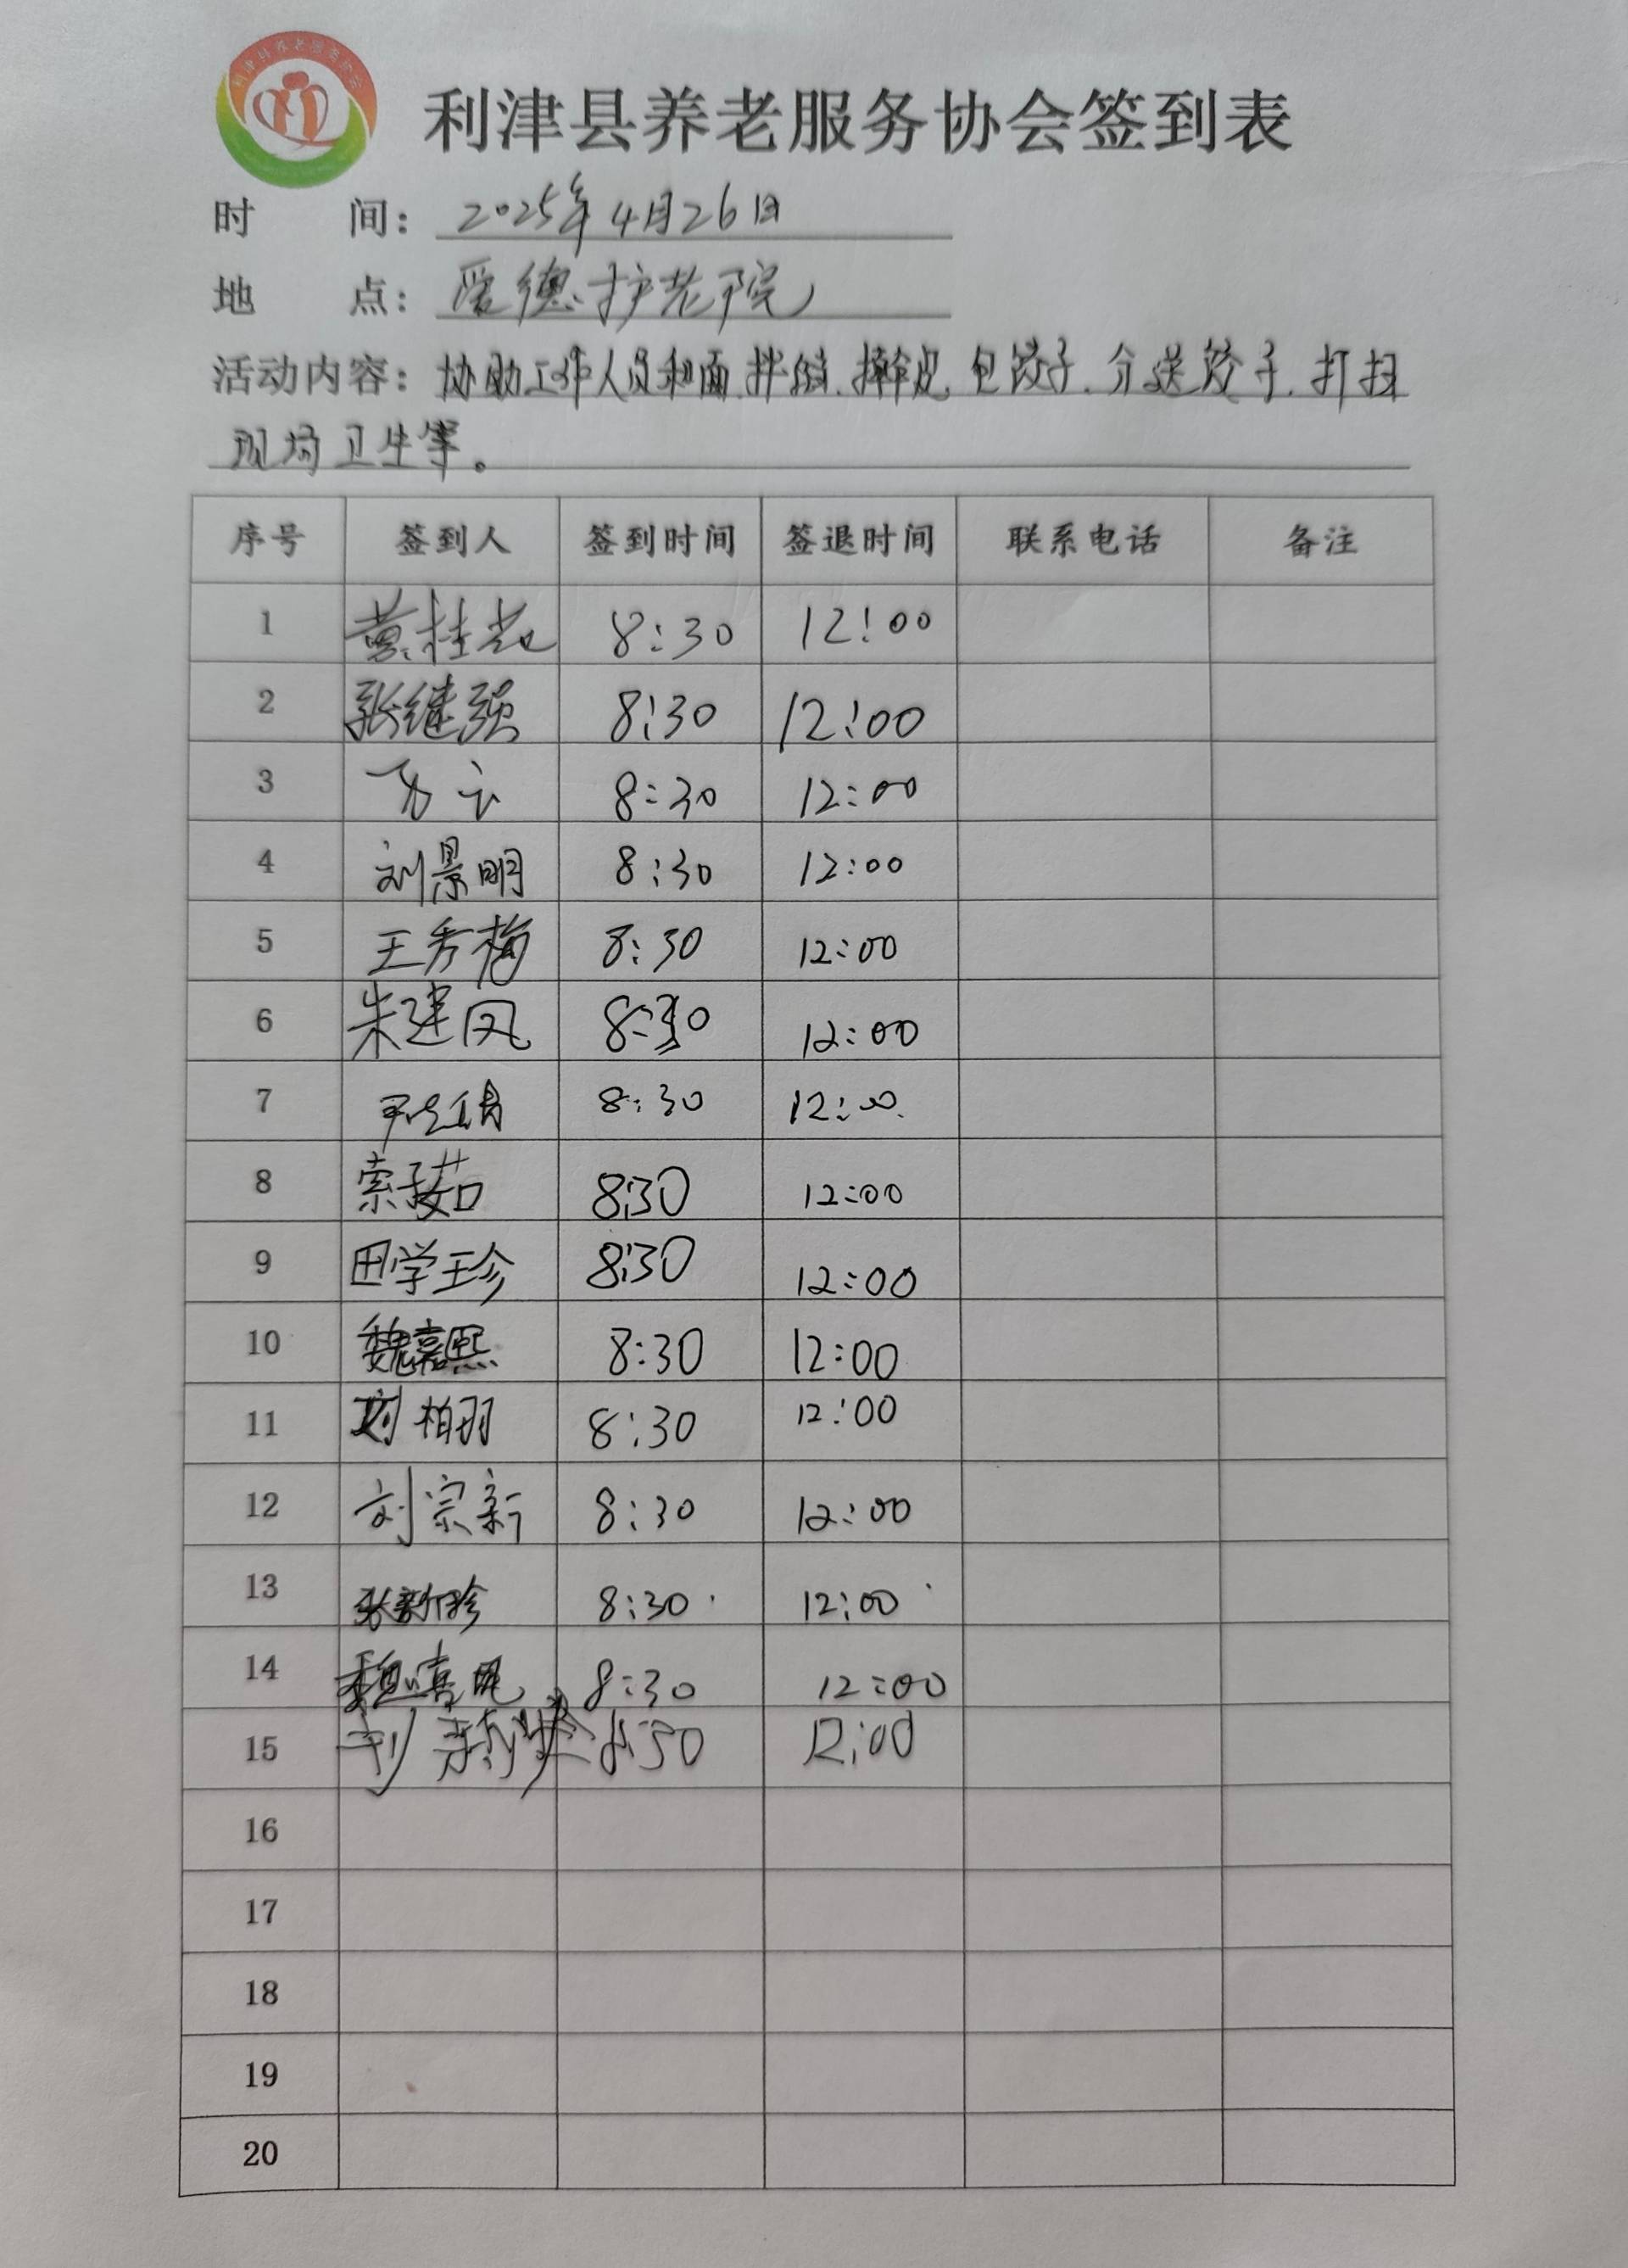 利津县养老服务协会
利津县养老服务协会签到表
时 间: 2025年4月26日
地 点: 爱德护老院
活动内容: 协助工作人员和面.拌馅.擀皮.包饺子.分送饺子.打扫
现场卫生等。
序号 签到人 签到时间 签退时间 联系电话 备注
1 黄桂花 8:30 12:00
2 张继强 8:30 12:00
3 8:30 12:00
4 刘景明 8:30 12:00
5 王秀梅 8:30 12:00
6 朱建凤 8:30 12:00
7 8:30 12:00
8 索子茹 8:30 12:00
9 田学珍 8:30 12:00
10 魏嘉熙 8:30 12:00
11 刘柏羽 8:30 12:00
12 刘宗新 8:30 12:00
13 张新珍 8:30 12:00
14 8:30 12:00
15 8:30 12:00
16
17
18
19
20